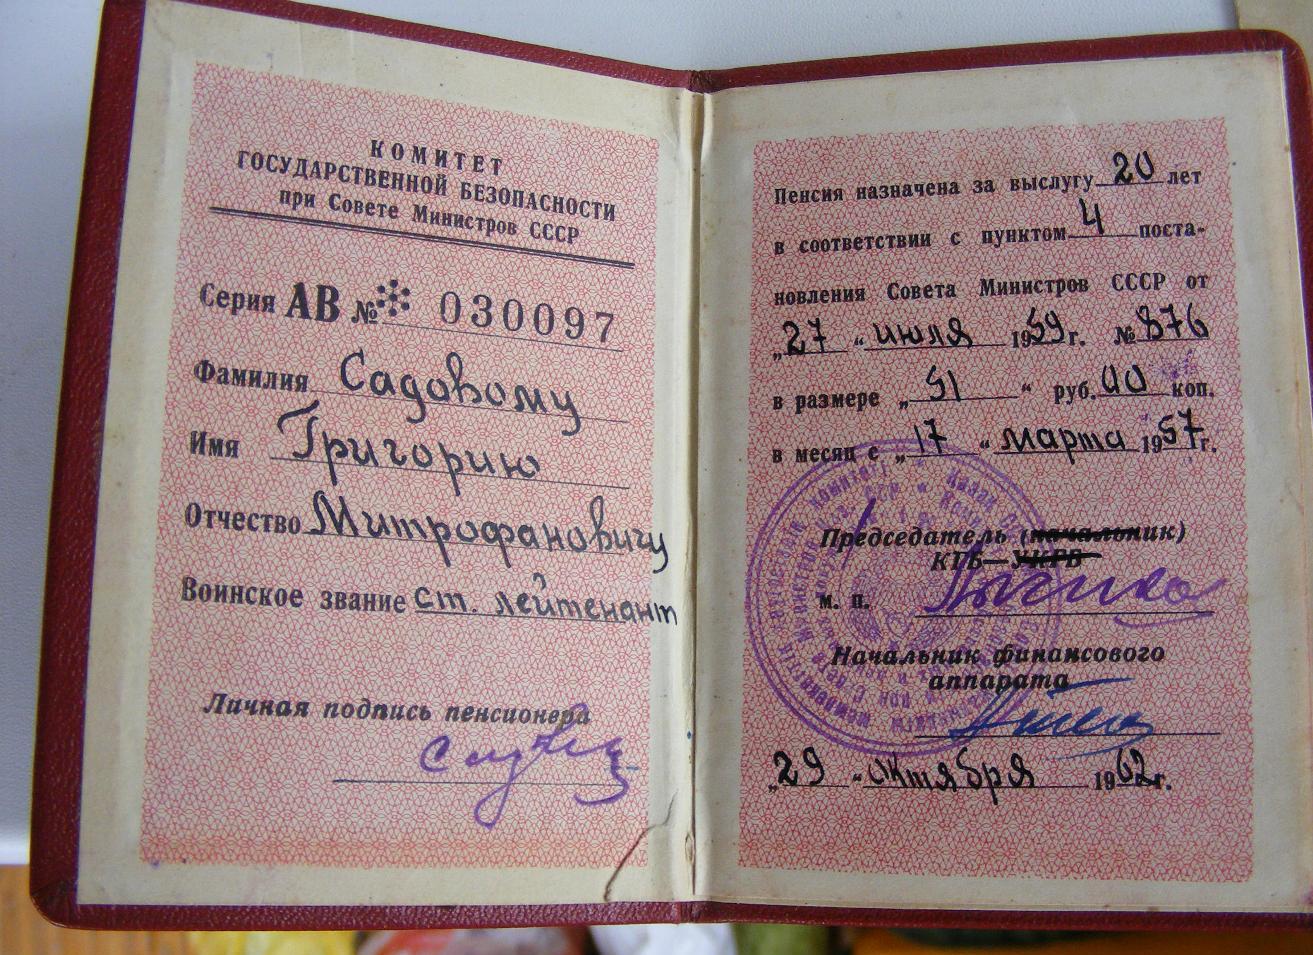 КОМИТЕТ
ГОСУДАРСТВЕННОЙ БЕЗОПАСНОСТИ
при Совете Министров СССР
Серия АВ № 030097
Фамилия Садовому
Имя Григорию
Отчество Митрофановичу
Воинское звание ст. лейтенант
Личная подпись пенсионера
Пенсия назначена за выслугу 20 лет
в соответствии с пунктом 4 поста-
новления Совета Министров СССР от
„27“ июля 1959 г. № 876
в размере „51“ руб. 00 коп.
в месяц с „17“ марта 1957 г.
Председатель (начальник)
КГБ—УКГБ
м. п.
Начальник финансового
аппарата
„29“ октября 1962 г.